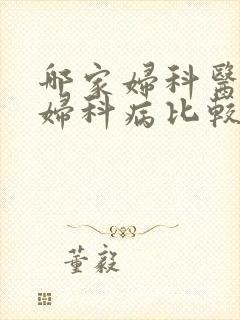 那家婦科醫
婦科病比較
董毅